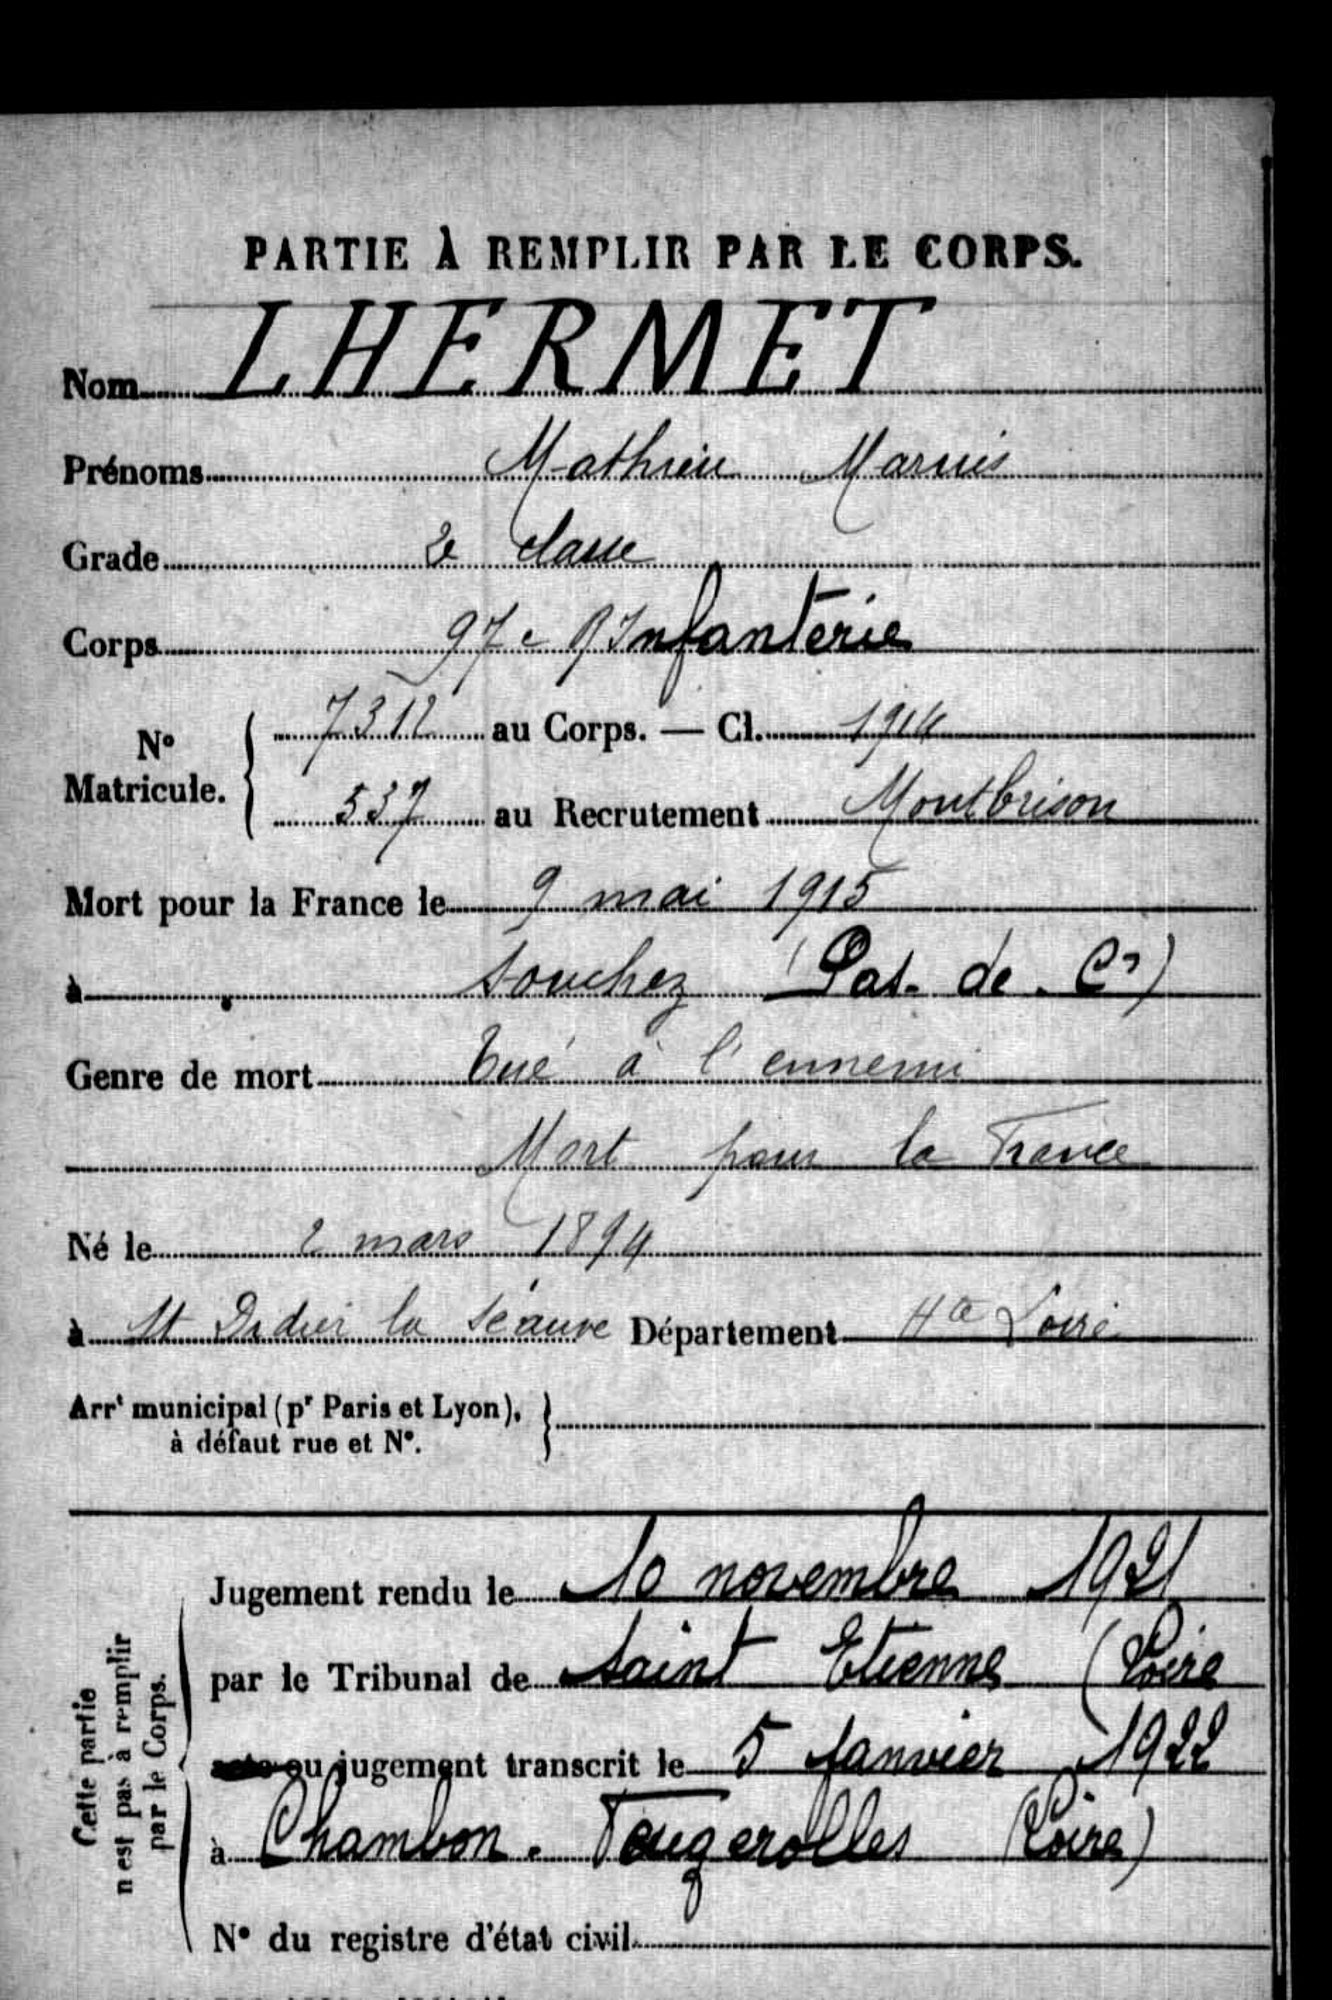 PARTIE À REMPLIR PAR LE CORPS.
Nom LHERMET
Prénoms Mathieu Marius
Grade 2e classe
Corps 97e R Infanterie
N° Matricule. { 7312 au Corps. — Cl. 1914
537 au Recrutement Montbrison
Mort pour la France le 9 mai 1915
à Souchez (Pas-de-Cs)
Genre de mort Tué à l'ennemi
Mort pour la France
Né le 2 mars 1894
à St Didier la Séauve Département Hte Loire
Arrt municipal (pr Paris et Lyon), }
à défaut rue et N°.
Cette partie
n'est pas à remplir
par le Corps.
Jugement rendu le 10 novembre 1921
par le Tribunal de Saint Etienne (Loire
acte ou jugement transcrit le 5 Janvier 1922
à Chambon-Feugerolles (Loire)
N° du registre d'état civil